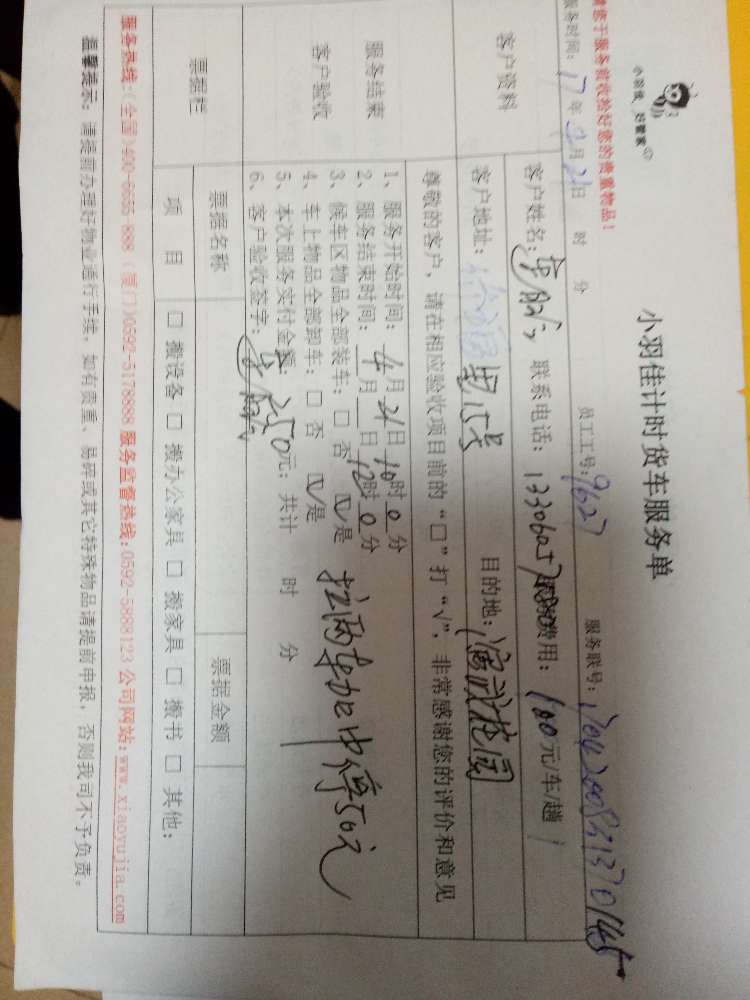 小羽佳 好管家
小羽佳计时货车服务单
请您于服务前收拾好您的贵重物品!
服务时间: 17年4月21日 时 分 员工工号: 9627 服务联号:
客户资料
客户姓名: 联系电话: 服务费用: 100元/车/趟
客户地址: 目的地: 花园
服务结束
客户验收
尊敬的客户,请在相应验收项目前的“□”打“√”,非常感谢您的评价和意见
1、服务开始时间: 4月21日10时0分
2、服务结束时间: 月 日12时0分
3、候车区物品全部装车: □ 否 ☑ 是
4、车上物品全部卸车: □ 否 ☑ 是
5、本次服务实付金额: 250元; 共计 时 分
6、客户验收签字:
拉两车加中停50元
票据栏
票据名称 票据金额
项 目 □ 搬设备 □ 搬办公家具 □ 搬家具 □ 搬书 □ 其他:
服务热线:(全国)400-6655 888 (厦门)0592-5178888 服务监督热线:0592-5888123 公司网站:www.xiaoyujia.com
温馨提示: 请提前办理好物业通行手续, 如有贵重、易碎或其它特殊物品请提前申报, 否则我司不予负责。